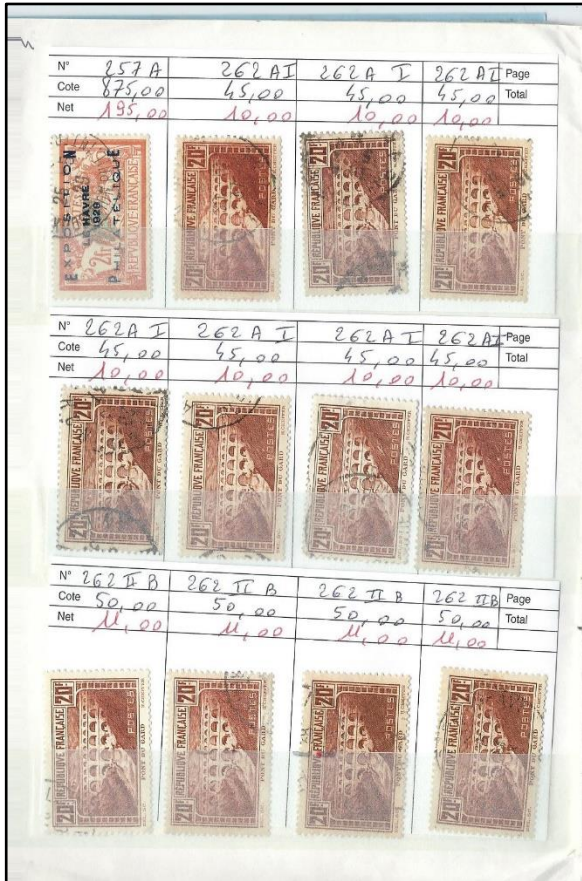 N° 257A 262 AI 262 A I 262 AI Page
Cote 875,00 45,00 45,00 45,00 Total
Net 195,00 10,00 10,00 10,00
EXPOSITION
LE HAVRE
1929
PHILATÉLIQUE
2F
REPUBLIQUE FRANÇAISE
20F REPUBLIQUE FRANÇAISE 20F POSTES
20F REPUBLIQUE FRANÇAISE 20F POSTES PONT DU GARD
20F REPUBLIQUE FRANÇAISE 20F POSTES PONT DU GARD
N° 262A I 262A I 262A I 262AI Page
Cote 45,00 45,00 45,00 45,00 Total
Net 10,00 10,00 10,00 10,00
20F REPUBLIQUE FRANÇAISE 20F POSTES PONT DU GARD
20F REPUBLIQUE FRANÇAISE 20F POSTES PONT DU GARD
20F REPUBLIQUE FRANÇAISE 20F POSTES PONT DU GARD
20F REPUBLIQUE FRANÇAISE 20F POSTES PONT DU GARD
N° 262 II B 262 II B 262 II B 262 IIB Page
Cote 50,00 50,00 50,00 50,00 Total
Net 11,00 11,00 11,00 11,00
20F REPUBLIQUE FRANÇAISE 20F POSTES PONT DU GARD
20F REPUBLIQUE FRANÇAISE 20F POSTES PONT DU GARD
20F REPUBLIQUE FRANÇAISE 20F POSTES
20F REPUBLIQUE FRANÇAISE 20F POSTES PONT DU GARD